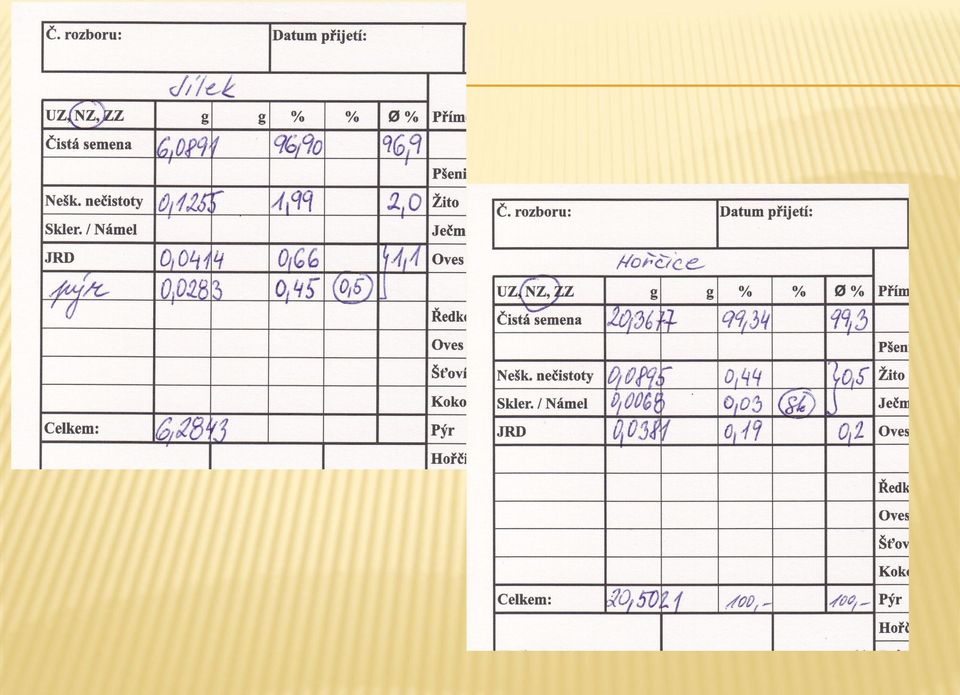 Č. rozboru: Datum přijetí:
Jílek
UZ, NZ, ZZ g g % % Ø % Přím
Čistá semena 6,0891 96,90 96,9
Pšeni
Nešk. nečistoty 0,1255 1,99 2,0 Žito
Skler. / Námel Ječm
JRD 0,0414 0,66 1,1 Oves
pýr 0,0283 0,45 0,5
Ředk
Oves
Šťoví
Koko
Celkem: 6,2843 Pýr
Hořči
Č. rozboru: Datum přijetí:
Hořčice
UZ, NZ, ZZ g g % % Ø % Přím
Čistá semena 20,3677 99,34 99,3
Pšen
Nešk. nečistoty 0,0895 0,44 0,5 Žito
Skler. / Námel 0,0068 0,03 8k Ječm
JRD 0,0381 0,19 0,2 Oves
Ředk
Oves
Šťov
Koko
Celkem: 20,5021 100,- 100,- Pýr
Hořč